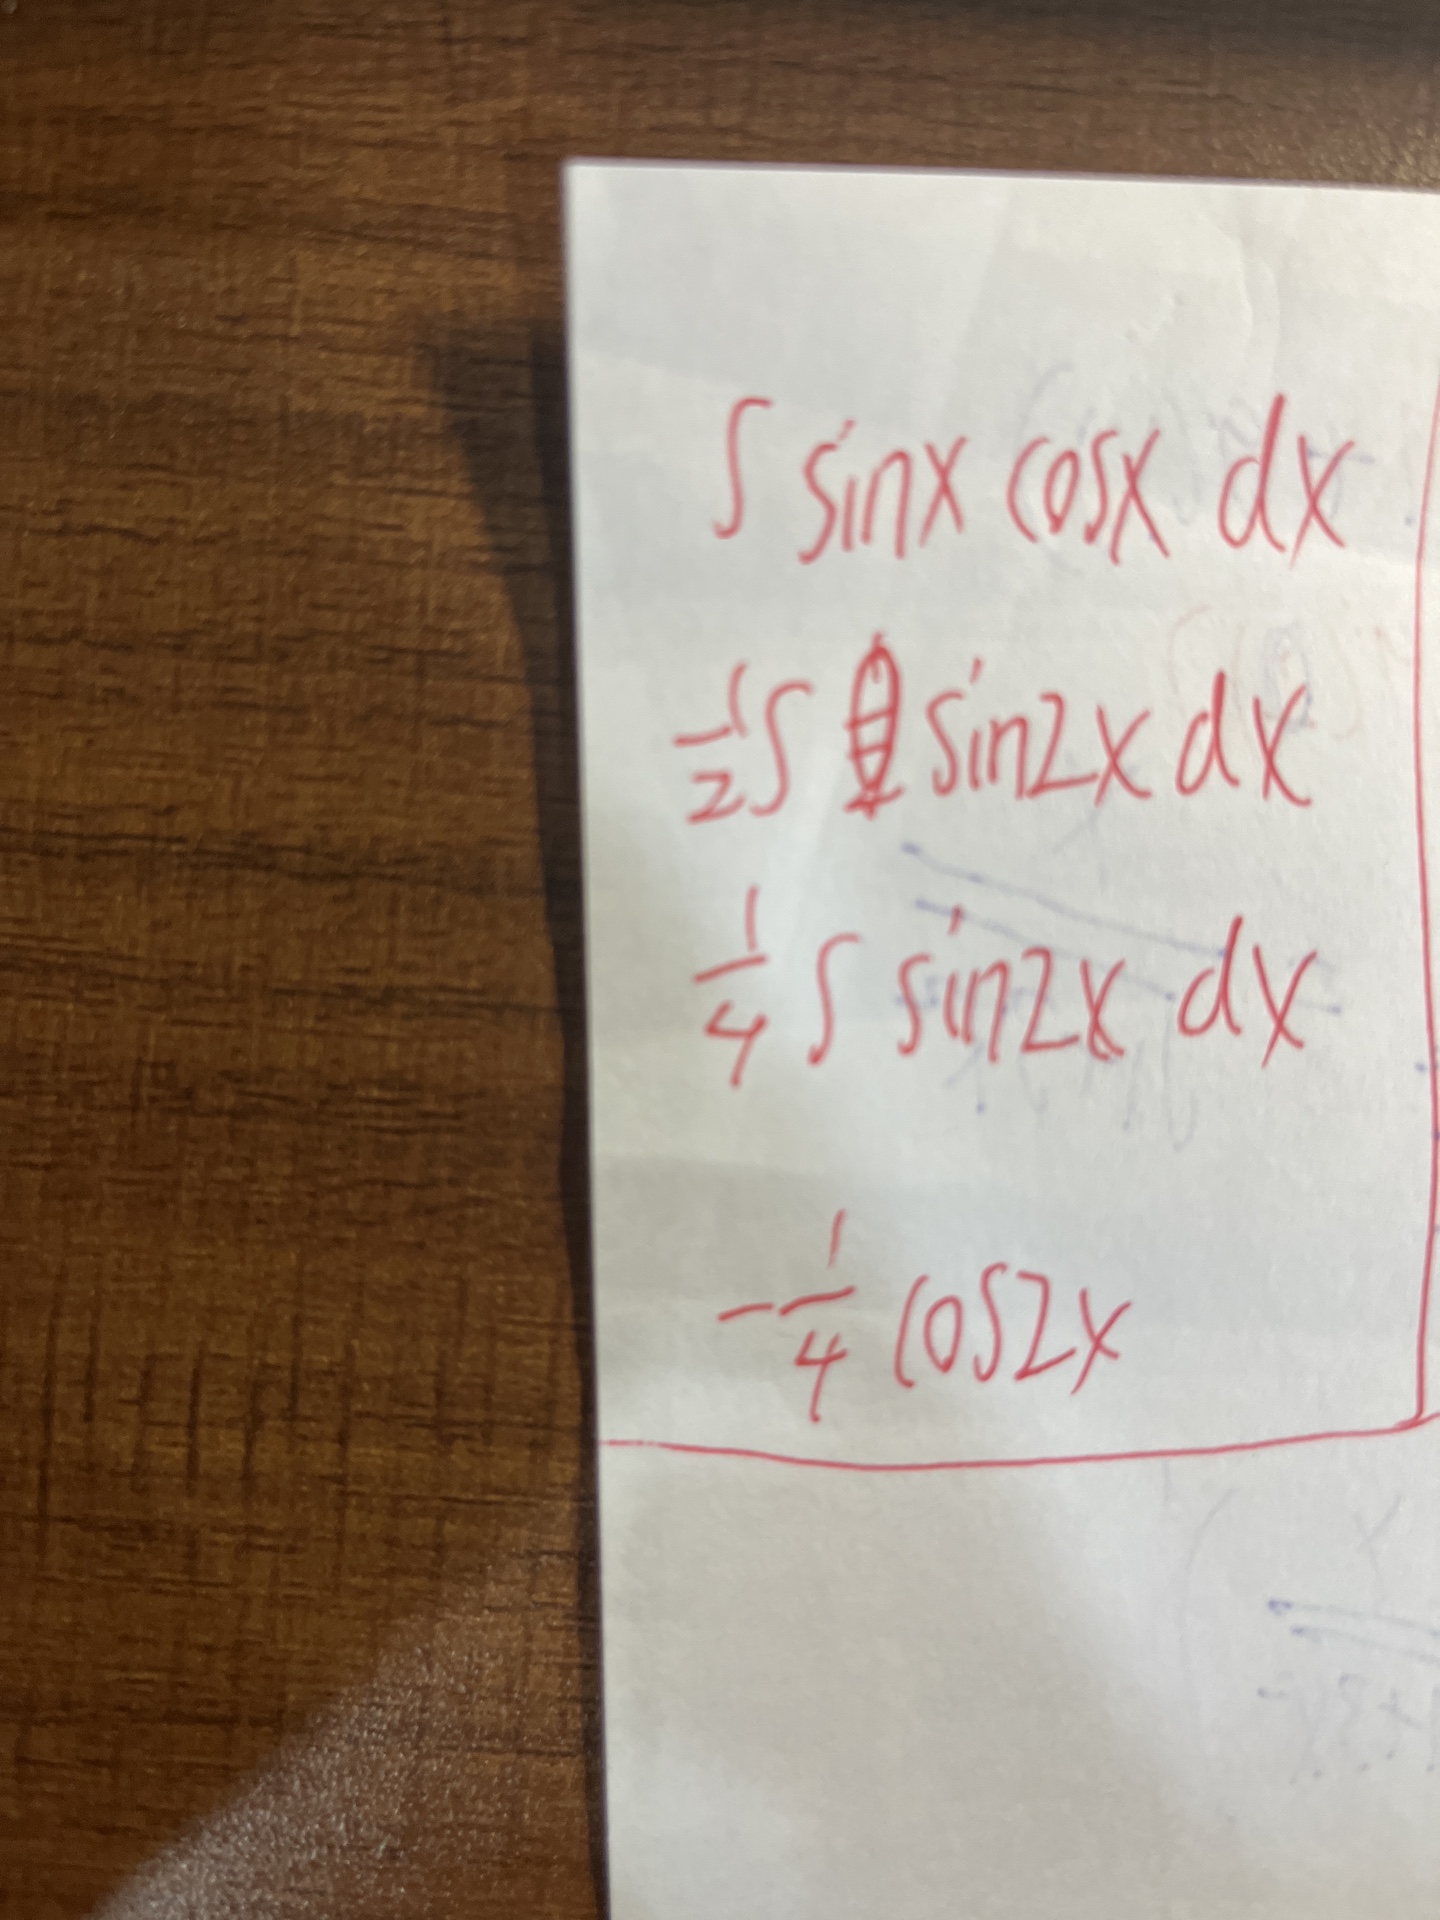 ∫ sinx cosx dx
1/2 ∫ sin2x dx
1/4 ∫ sin2x dx
-1/4 cos2x